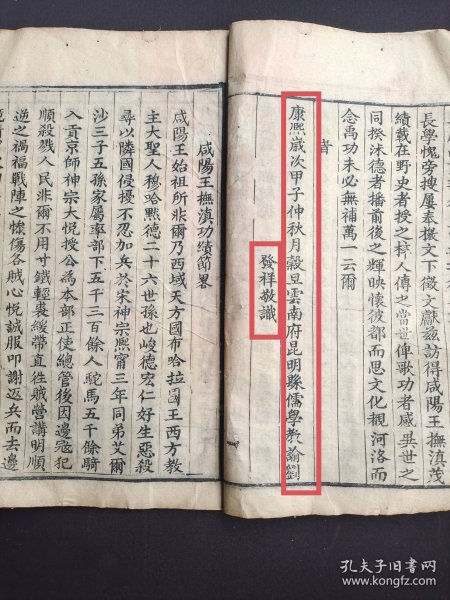 長學愧旁搜屢奉檄文下徵文獻茲訪得咸陽王撫滇茂
績載在野史者授之梓人傳之當世俾歌功者感奕世之
同揆沐德者播前後之輝映懷彼都而思文化覩河洛而
念禹功未必無補萬一云爾
旹
康熙歲次甲子仲秋月穀旦雲南府昆明縣儒學教諭劉
發祥敬識
咸陽王撫滇功績節畧
咸陽王始祖所非爾乃西域天方國布哈拉國王西方教
主大聖人穆哈默德二十六世孫也峻德宏仁好生惡殺
尋以隣國侵擾不忍加兵於宋神宗熙甯三年同弟艾爾
沙三子五孫家屬率部下五千三百餘人駝馬五千餘騎
入貢京師神宗大悅授公為本部正使總管後因邊寇犯
順殺戮人民非爾不用寸鐵輕裘緩帶直徃賊營講明順
逆之禍福戰陣之慘傷各賊心悅誠服叩謝返兵而去邊
孔夫子旧书网
www.kongfz.com